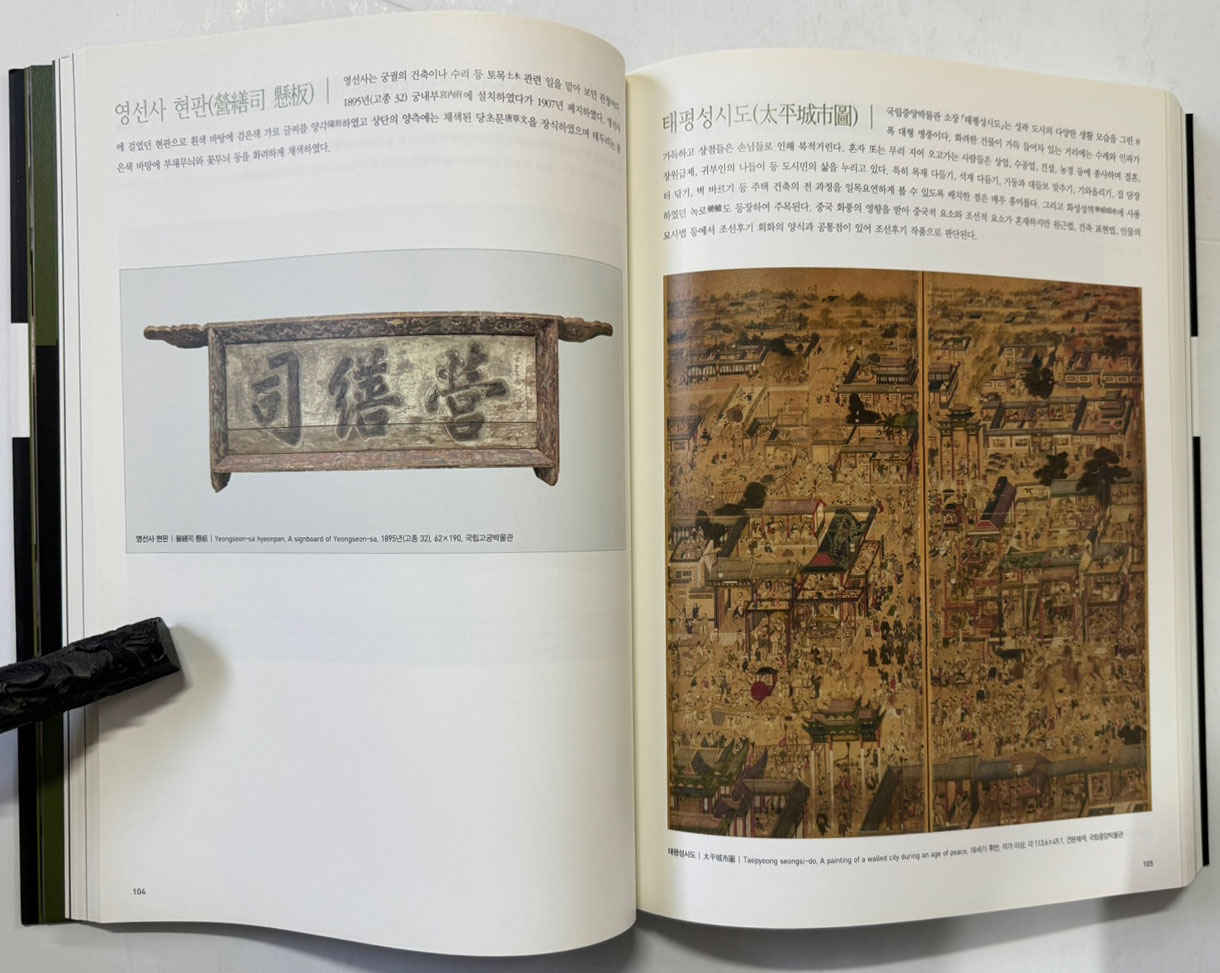 영선사 현판(營繕司 懸板)
영선사는 궁궐의 건축이나 수리 등 토목土木 관련 일을 맡아 보던 관청이다.
1895년(고종 32) 궁내부宮內府에 설치하였다가 1907년 폐지하였다. 영선사
에 걸었던 현판으로 흰색 바탕에 검은색 가로 글씨를 양각陽刻하였고 상단의 양측에는 채색된 당초문唐草文을 장식하였으며 테두리는 붉
은색 바탕에 부채무늬와 꽃무늬 등을 화려하게 채색하였다.
司繕營
영선사 현판 | 營繕司 懸板 | Yeongseon-sa hyeonpan, A signboard of Yeongseon-sa, 1895년(고종 32), 62×190, 국립고궁박물관
104
태평성시도(太平城市圖)
국립중앙박물관 소장 『태평성시도』는 성곽 도시의 다양한 생활 모습을 그린 8
폭 대형 병풍이다. 화려한 건물이 가득 들어차 있는 거리에는 수레와 인파가
가득하고 상점들은 손님들로 인해 북적거린다. 혼자 또는 무리 지어 오고가는 사람들은 상업, 수공업, 건설, 농경 등에 종사하며 결혼,
장원급제, 귀부인의 나들이 등 도시민의 삶을 누리고 있다. 특히 목재 다듬기, 석재 다듬기, 기둥과 대들보 맞추기, 기와올리기, 집 담장
터 닦기, 벽 바르기 등 주택 건축의 전 과정을 일목요연하게 볼 수 있도록 배치한 점은 매우 흥미롭다. 그리고 화성성역에 사용
하였던 녹로도 등장하여 주목된다. 중국 화풍의 영향을 받아 중국적 요소와 조선적 요소가 혼재하지만 원근법, 건축 표현법, 인물의
묘사법 등에서 조선후기 회화의 양식과 공통점이 있어 조선후기 작품으로 판단된다.
태평성시도 | 太平城市圖 | Taepyeong seongsi-do, A painting of a walled city during an age of peace, 18세기 후반, 작가 미상, 각 113.6×49.1, 견본채색, 국립중앙박물관
105